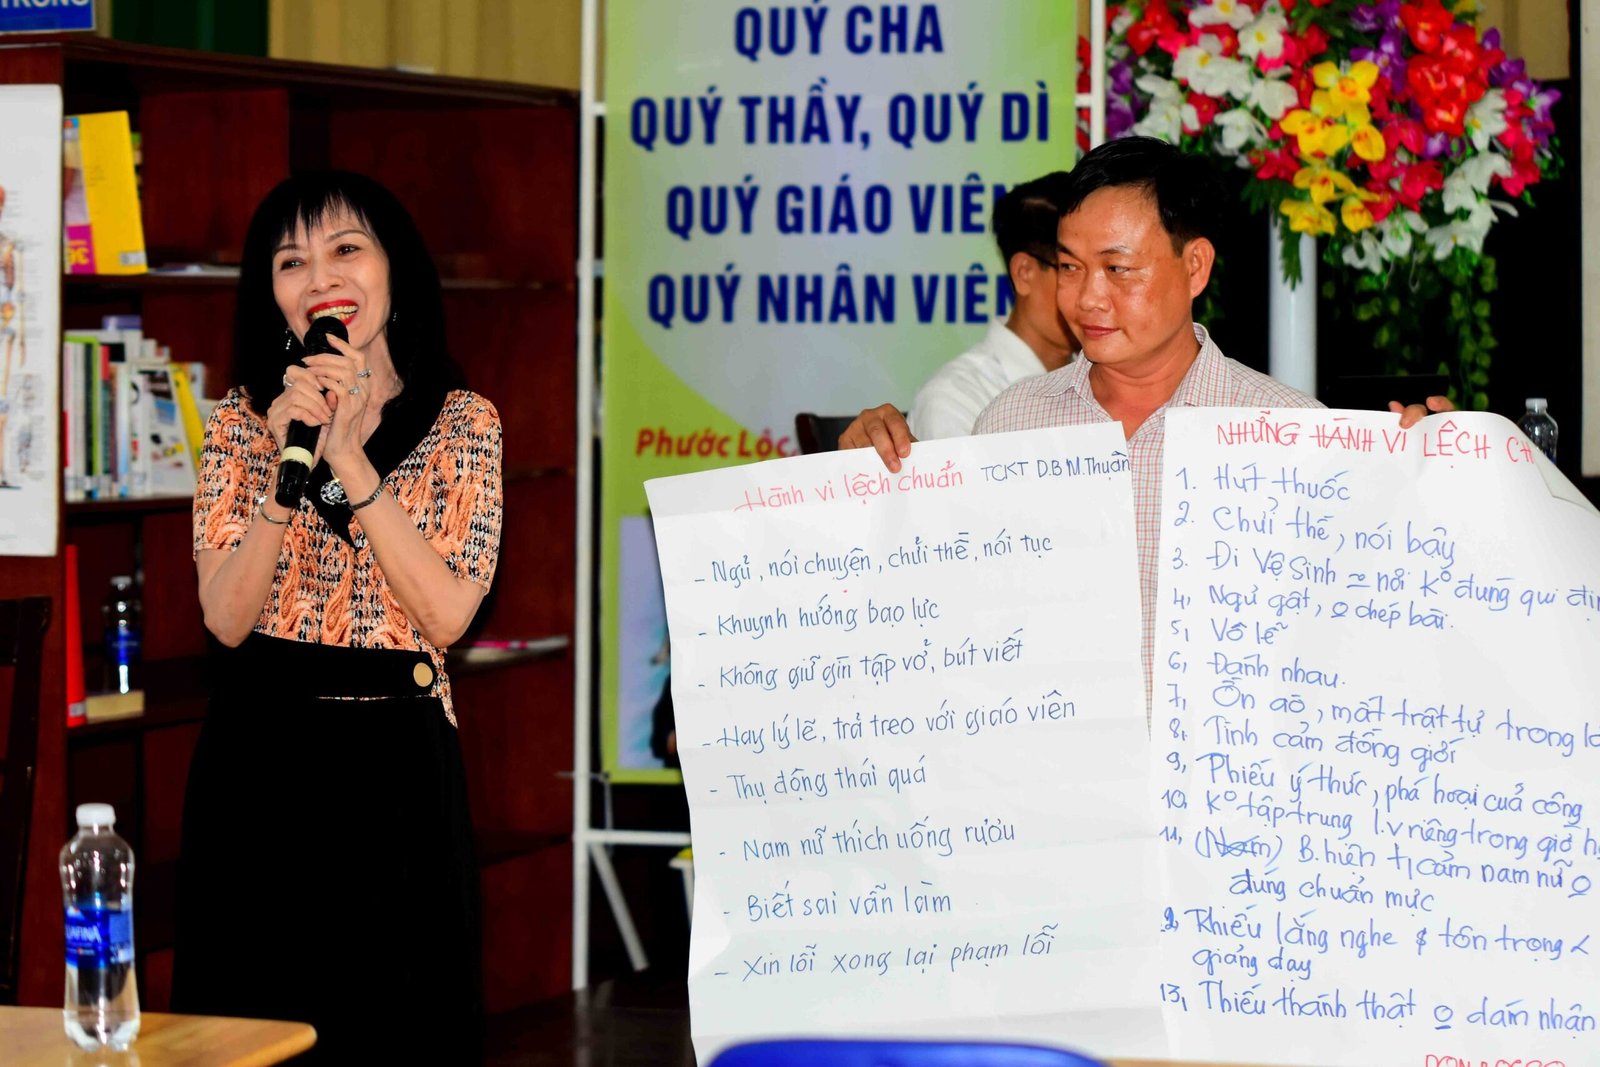 TRONG
QUÝ CHA
QUÝ THẦY, QUÝ DÌ
QUÝ GIÁO VIÊN
QUÝ NHÂN VIÊN
Phước Lộc,
Hành vi lệch chuẩn TCKT D.B M.Thuận
- Ngủ, nói chuyện, chửi thề, nói tục
- Khuynh hướng bạo lực
- Không giữ gìn tập vở, bút viết
- Hay lý lẽ, trả treo với giáo viên
- Thụ động thái quá
- Nam nữ thích uống rượu
- Biết sai vẫn làm
- Xin lỗi xong lại phạm lỗi
NHỮNG HÀNH VI LỆCH CH
1. Hút thuốc
2. Chửi thề, nói bậy
3. Đi Vệ Sinh ở nơi K° đúng qui địn
4, Ngủ gật, o chép bài.
5, Vô lễ
6, Đánh nhau.
7, Ồn ào, mất trật tự trong lớ
8, Tình cảm đồng giới
9, Phiếu ý thức, phá hoại cuả công
10, K° tập trung l.v riêng trong giờ h
11, (Nam) B.hiện t/cảm nam nữ o
đúng chuẩn mực
2, Khiếu lắng nghe & tôn trọng <
giảng dạy
13, Thiếu thành thật o dám nhận
AQUAFINA